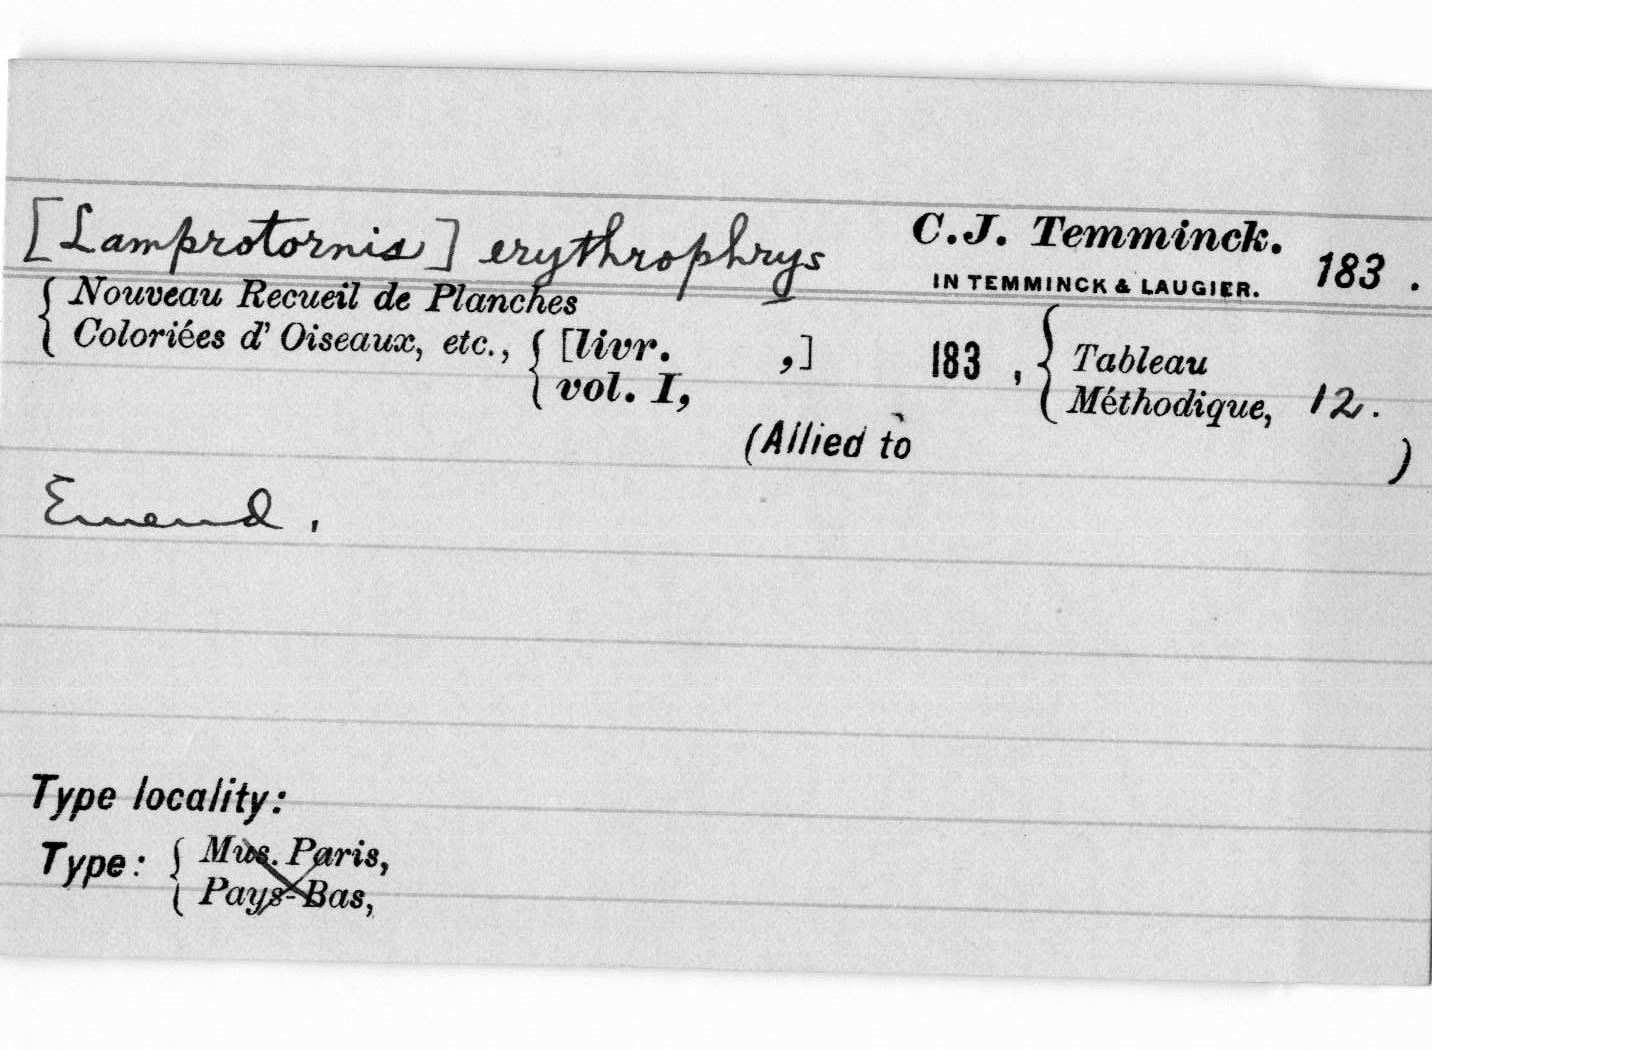 [Lamprotornis] erythrophrys C.J. Temminck.
IN TEMMINCK & LAUGIER. 183 .
{ Nouveau Recueil de Planches
Coloriées d' Oiseaux, etc., { [livr. ,] 183 , { Tableau
vol. I, Méthodique, 12.
(Allied to )
Emend.
Type locality:
Type: { Mus. Paris,
Pays-Bas,